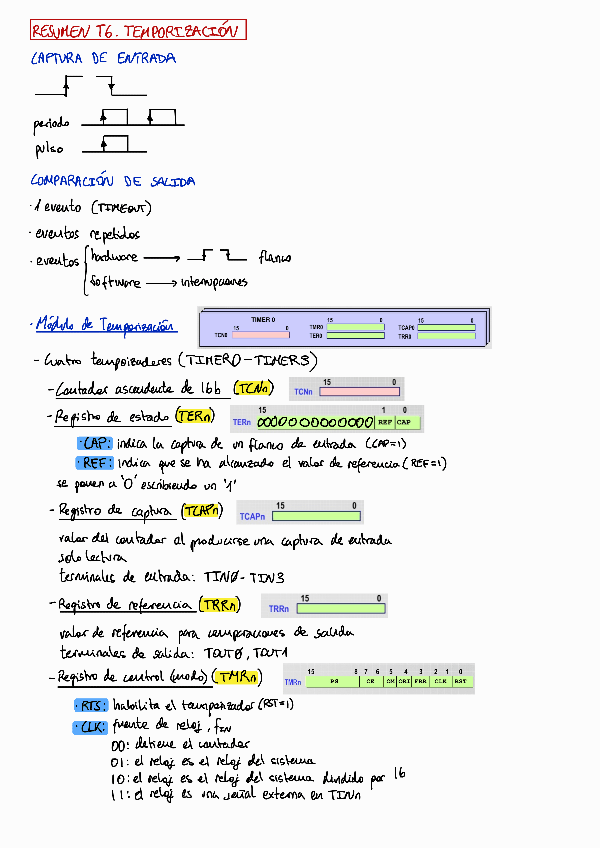 RESUMEN T6. TEMPORIZACIÓN
CAPTURA DE ENTRADA
periodo
pulso
COMPARACIÓN DE SALIDA
· 1 evento (TIMEOUT)
· eventos repetidos
· eventos hardware → flanco
software → interrupciones
· Módulo de Temporización
TIMER 0
15 0 15 0 15 0
TCN0 TMR0 TCAP0
TER0 TRR0
- Cuatro temporizadores (TIMER0 - TIMER3)
- Contador ascendente de 16b (TCNn)
15 0
TCNn
- Registro de estado (TERn)
15 1 0
TERn 00000000000000 REF CAP
· CAP: indica la captura de un flanco de entrada (CAP=1)
· REF: indica que se ha alcanzado el valor de referencia (REF=1)
se ponen a '0' escribiendo un '1'
- Registro de captura (TCAPn)
15 0
TCAPn
valor del contador al producirse una captura de entrada
solo lectura
terminales de entrada: TIN0 - TIN3
- Registro de referencia (TRRn)
15 0
TRRn
valor de referencia para comparaciones de salida
terminales de salida: TOUT0, TOUT1
- Registro de control (modo) (TMRn)
15 8 7 6 5 4 3 2 1 0
TMRn PS CE OM ORI FRR CLK RST
· RTS: habilita el temporizador (RST=1)
· CLK: fuente de reloj, fIN
00: detiene el contador
01: el reloj es el reloj del sistema
10: el reloj es el reloj del sistema dividido por 16
11: el reloj es una señal externa en TINn